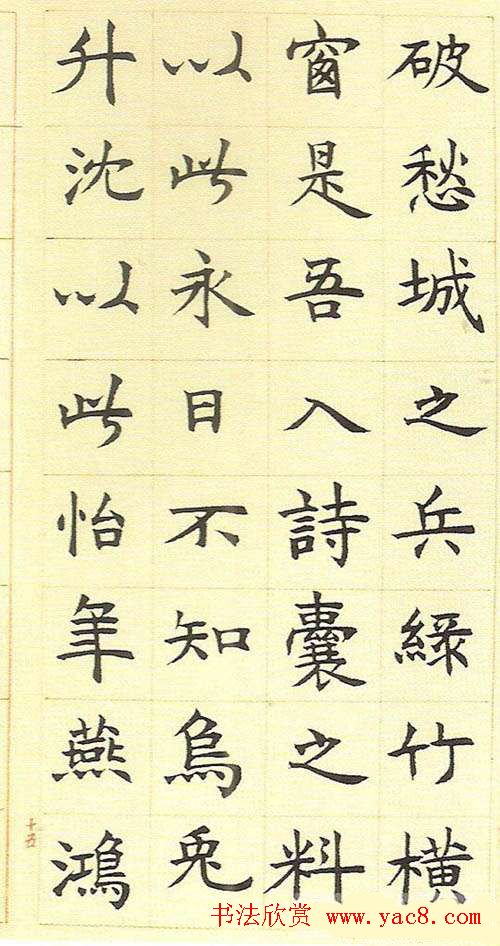 破愁城之兵綠竹橫
窗是吾入詩囊之料
以此永日不知烏兎
升沈以此怡年燕鴻
十五
书法欣赏 www.yac8.com